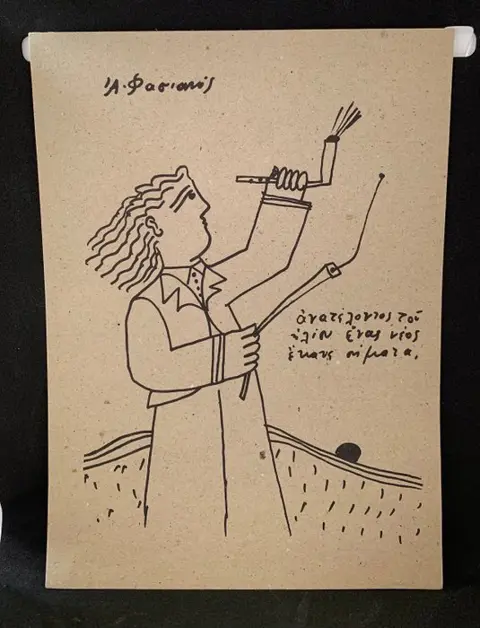 Α. Φασιανός
ἀνατέλοντος τοῦ
ἡλίου ἕνας νέος
ἔκανε σήματα.